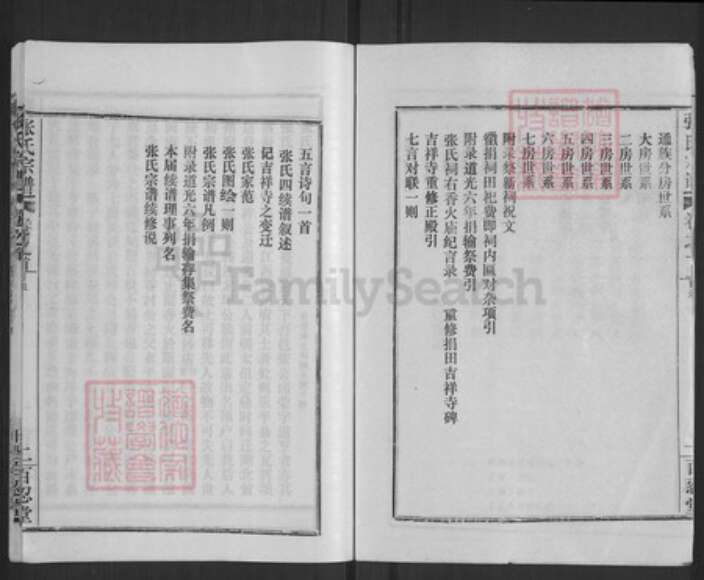 通族分房世系
大房世系
二房世系
三房世系
四房世系
五房世系
六房世系
七房世系
附录祭新祠祝文
徵捐祠田祀费即祠内匾对杂项引
附录道光六年捐输祭费引
张氏祠右香火庙纪言录 重修捐田吉祥寺碑
吉祥寺重修正殿引
七言对联一则
五言诗句一首
张氏四续谱叙述
记吉祥寺之变迁
张氏家范
张氏图绘一则
张氏宗谱凡例
附录道光六年捐输存集祭费名
本届续谱理事列名
张氏宗谱续修说
张氏宗谱
百忍堂
FamilySearch